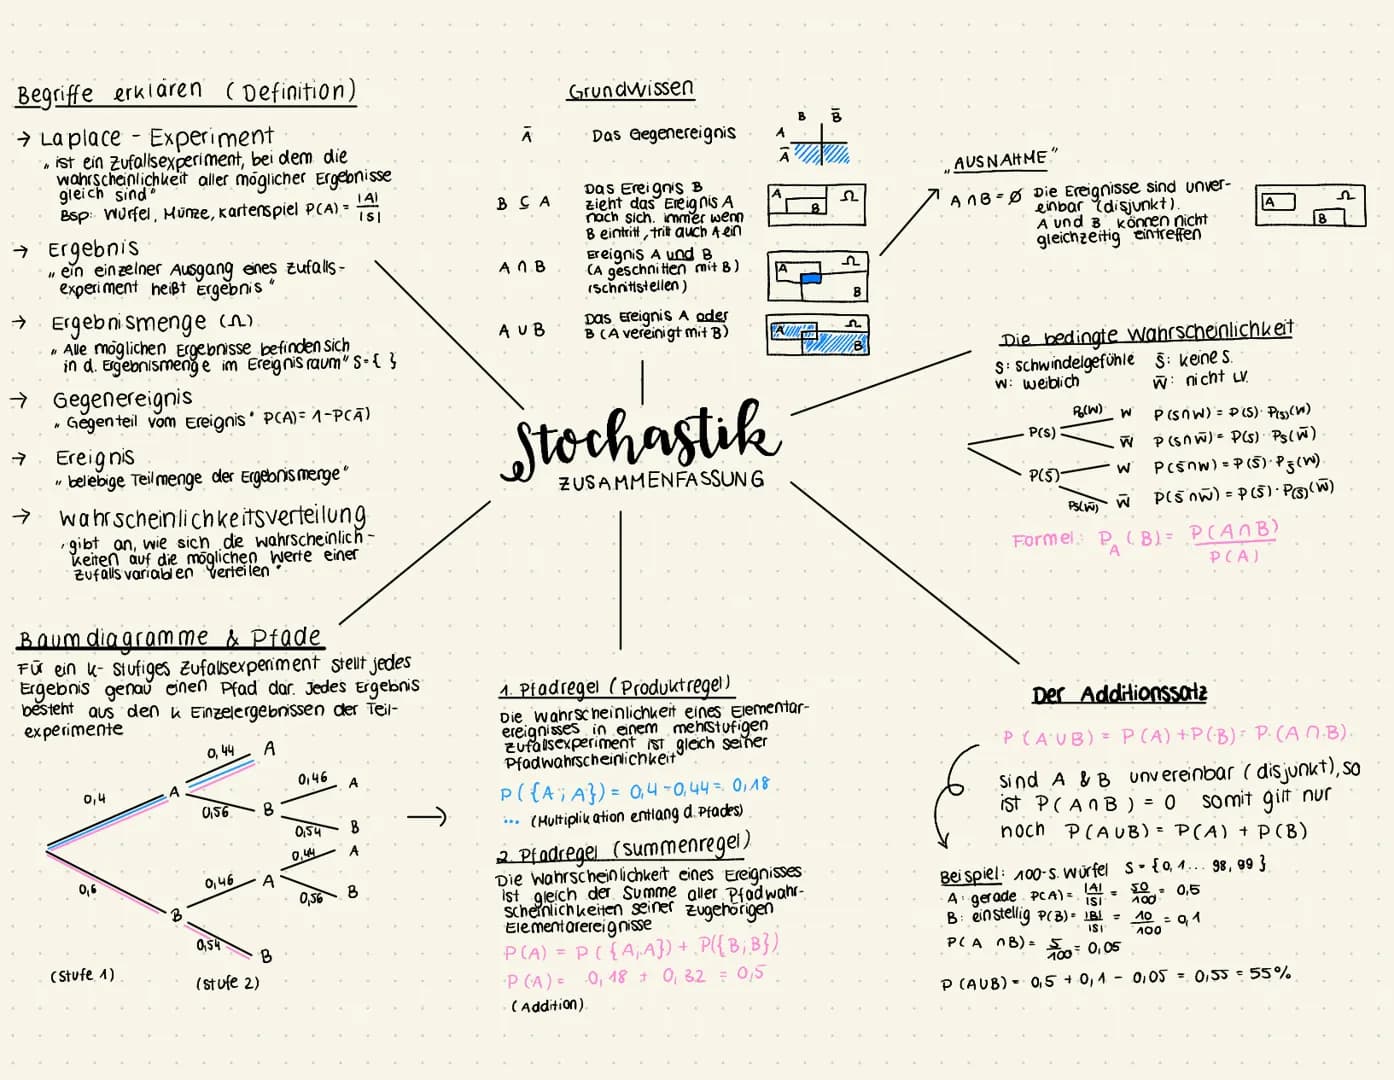 Begriffe erklären (Definition)
→ Laplace - Experiment
„ist ein Zufallsexperiment, bei dem die
wahrscheinlichkeit aller möglicher Ergebnisse
gleich sind"
Bsp: Würfel, Münze, Kartenspiel P(A) = |A| / |S|
→ Ergebnis
„ein einzelner Ausgang eines Zufalls-
experiment heißt Ergebnis"
→ Ergebnismenge (Ω)
„Alle möglichen Ergebnisse befinden sich
in d. Ergebnismenge im Ereignisraum" S={ }
→ Gegenereignis
„Gegenteil vom Ereignis" P(A) = 1-P(Ā)
→ Ereignis
„beliebige Teilmenge der Ergebnismenge"
→ Wahrscheinlichkeitsverteilung
„gibt an, wie sich die wahrscheinlich-
keiten auf die möglichen Werte einer
Zufallsvariablen verteilen"
Grundwissen
Ā Das Gegenereignis
B B̄
A
Ā
B ⊆ A Das Ereignis B
zieht das Ereignis A
nach sich. immer wenn
B eintritt, tritt auch A ein
A B Ω
A ∩ B Ereignis A und B
(A geschnitten mit B)
(Schnittstellen)
A Ω B
A ∪ B Das Ereignis A oder
B (A vereinigt mit B)
A Ω B
„AUSNAHME"
A ∩ B = Ø Die Ereignisse sind unver-
einbar (disjunkt).
A und B können nicht
gleichzeitig eintreffen
A Ω B
Stochastik
ZUSAMMENFASSUNG
Die bedingte Wahrscheinlichkeit
S: Schwindelgefühle S̄: keine S.
W: weiblich W̄: nicht W.
P(S) W P(S∩W) = P(S) · P(S)(W)
W̄ P(S∩W̄) = P(S) · Ps(W̄)
P(S̄) W P(S̄∩W) = P(S̄) · P S̄(W)
W̄ P(S̄∩W̄) = P(S̄) · P(S̄)(W̄)
Formel: P A (B) = P(A∩B) / P(A)
Baumdiagramme & Pfade
Für ein k- Stufiges Zufallsexperiment stellt jedes
Ergebnis genau einen Pfad dar. Jedes Ergebnis
besteht aus den k Einzelergebnissen der Teil-
experimente
0,44 A
0,4 A 0,46 A
0,56 B
0,54 B
0,44 A
0,6 0,46 A
0,56 B
B
0,54 B
(Stufe 1) (Stufe 2)
1. Pfadregel (Produktregel)
Die Wahrscheinlichkeit eines Elementar-
ereignisses in einem mehrstufigen
Zufallsexperiment ist gleich seiner
Pfadwahrscheinlichkeit
P({A;A}) = 0,4-0,44 = 0,18
... (Multiplikation entlang d. Pfades)
2. Pfadregel (Summenregel)
Die Wahrscheinlichkeit eines Ereignisses
ist gleich der Summe aller Pfadwahr-
scheinlichkeiten seiner zugehörigen
Elementarereignisse
P(A) = P({A;A}) + P({B;B})
P(A) = 0,18 + 0,32 = 0,5
(Addition)
Der Additionssatz
P(A∪B) = P(A) + P(B) - P(A∩B)
Sind A & B unvereinbar (disjunkt), so
ist P(A∩B) = 0 somit gilt nur
noch P(A∪B) = P(A) + P(B)
Beispiel: 100-S. Würfel S = {0, 1... 98, 99}
A: gerade P(A) = |A| / |S| = 50 / 100 = 0,5
B: einstellig P(B) = |B| / |S| = 10 / 100 = 0,1
P(A ∩B) = 5 / 100 = 0,05
P(A∪B) = 0,5 + 0,1 - 0,05 = 0,55 = 55%